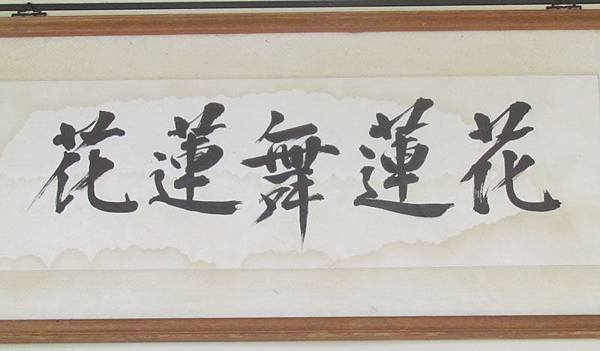 花蓮舞蓮花